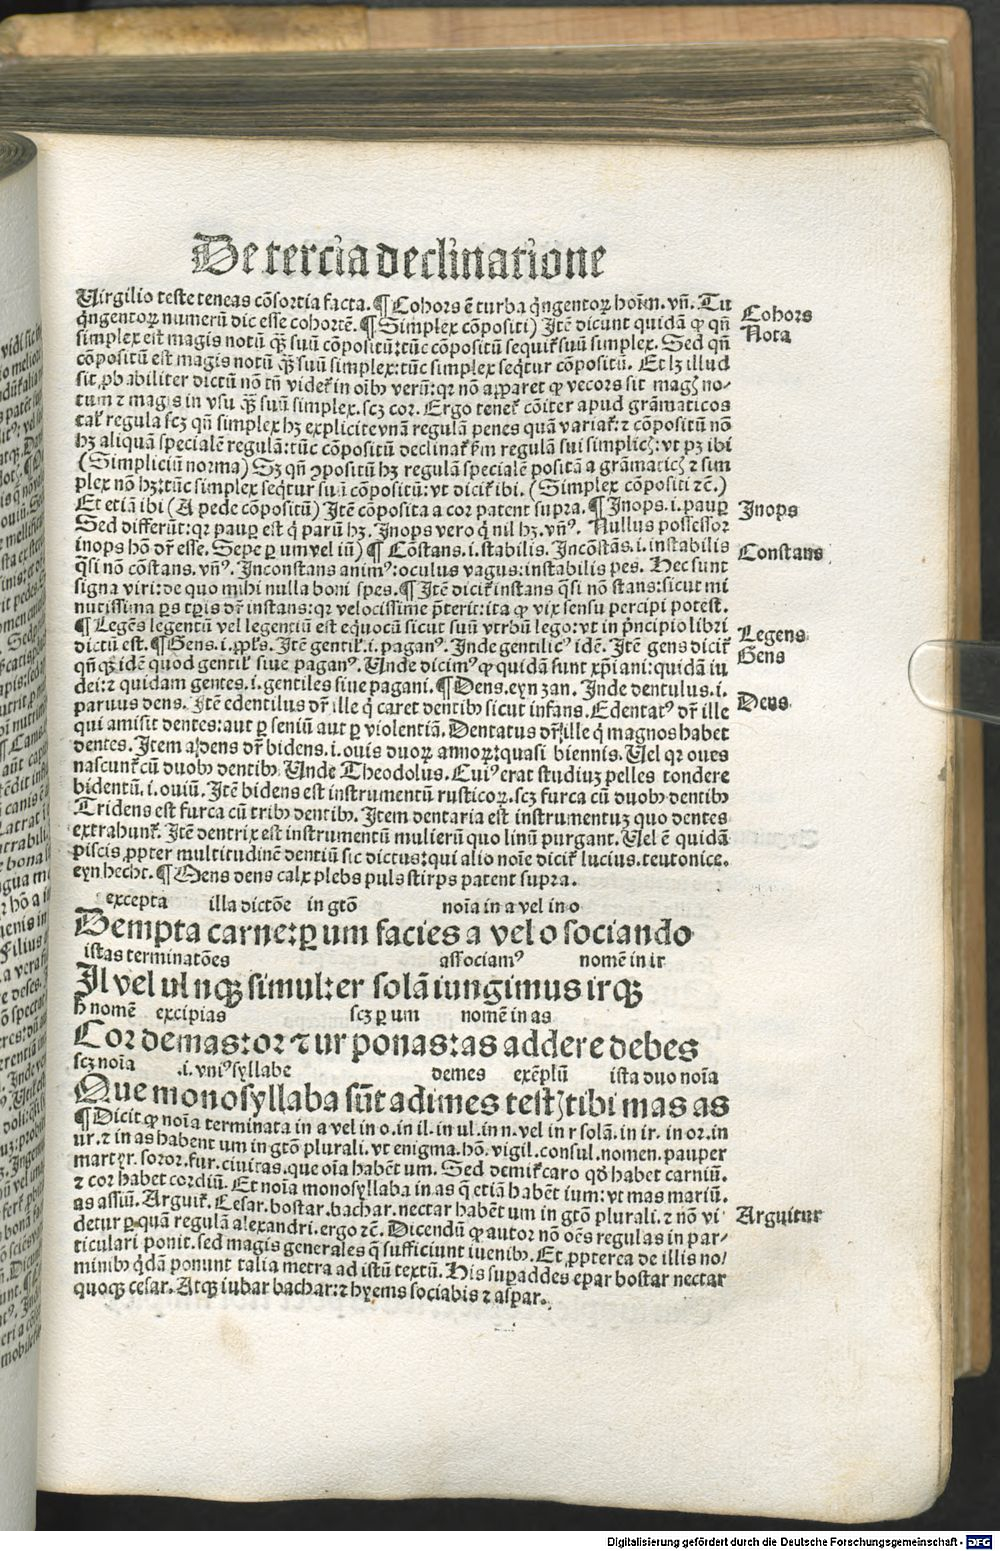 De tercia declinatione
Uirgilio teste teneas cõsortia facta. ¶ Cohors ẽ turba q̃ngentoꝝ hoĩm. vñ. Tu
q̃ngentoꝝ numerũ dic esse cohortẽ. ¶ (Simplex cõpositi) Itẽ dicunt quidã ꝙ qñ
simplex est magis notũ ꝙ̃ suũ cõpositũ: tũc cõpositũ sequit᷑ suũ simplex. Sed qñ
cõpositũ est magis notũ ꝙ̃ suũ simplex: tũc simplex seq̃tur cõpositũ. Et lꝫ illud
sit ꝓbabiliter dictũ nõ tñ videt᷑ in oĩbꝰ verũ: qꝛ nõ apparet ꝙ vecors sit magꝭ no⸗
tum ⁊ magis in vsu ꝙ̃ suũ simplex. scꝫ cor. Ergo tenet᷑ cõiter apud grãmaticos
tal᷑ regula scꝫ qñ simplex hꝫ explicite vnã regulã penes quã variat᷑: ⁊ cõpositũ nõ
hꝫ aliquã specialẽ regulã: tũc cõpositũ declinat᷑ ẜm regulã sui simplicꝭ: vt pꝫ ibi
(Simpliciũ norma) Sꝫ qñ ꝯpositũ hꝫ regulã specialẽ positã a grãmaticꝭ ⁊ sim
plex nõ hꝫ: tũc simplex seq̃tur suũ cõpositũ: vt dicit᷑ ibi. (Simplex cõpositi ⁊c̃.)
Et etiã ibi (A pede cõpositũ) Itẽ cõposita a cor patent supra. ¶ Inops. i. pauꝑ
Sed differũt: qꝛ pauꝑ est q̃ parũ hꝫ. Inops vero q̃ nil hꝫ. vñꝰ. Nullus possessor
inops hõ dr̃ esse. Sepe ꝑ um vel iũ) ¶ Cõstans. i. stabilis. Incõstãs. i. instabilis
q̃si nõ cõstans. vñꝰ. Inconstans animꝰ: oculus vagus: instabilis pes. Hec sunt
signa viri: de quo mihi nulla boni spes. ¶ Itẽ dicit᷑ instans q̃si nõ stans: sicut mi
nutissima ꝑs tꝑis dr̃ instans: qꝛ velocissime p̃terit: ita ꝙ vix sensu percipi potest.
¶ Legẽs legentũ vel legenciũ est equocũ sicut suũ vtrbũ lego: vt in p̃ncipio libri
dictũ est. ¶ Gens. i. ꝓpl᷑s. Itẽ gentil᷑. i. paganꝰ. Inde gentilicꝰ idẽ. Itẽ gens dicit᷑
qñꝙ̃ idẽ quod gentil᷑ siue paganꝰ. Unde dicimꝰ ꝙ quidã sunt xp̃iani: quidã iu
dei: ⁊ quidam gentes. i. gentiles siue pagani. ¶ Dens. eyn zan. Inde dentulus. i.
paruus dens. Itẽ edentilus dr̃ ille q̃ caret dentibꝰ sicut infans. Edentatꝰ dr̃ ille
qui amisit dentes: aut ꝑ seniũ aut ꝑ violentiã. Dentatus dr̃ ille q̃ magnos habet
dentes. Item a dens dr̃ bidens. i. ouis duoꝝ annoꝝ: quasi biennis. Uel qꝛ oues
nascunt᷑ cũ duobꝰ dentibꝰ. Unde Theodolus. Cuiꝰ erat studiuꝫ pelles tondere
bidentũ. i. ouiũ. Itẽ bidens est instrumentũ rusticoꝝ. scꝫ furca cũ duobꝰ dentibꝰ
Tridens est furca cũ tribꝰ dentibꝰ. Item dentaria est instrumentuꝫ quo dentes
extrahunt᷑. Itẽ dentrix est instrumentũ mulierũ quo linũ purgant. Uel ẽ quidã
piscis ꝓpter multitudinẽ dentiũ sic dictus: qui alio noĩe dicit᷑ lucius. teutonice.
eyn hecht. ¶ Mens dens calx plebs puls stirps patent supra.
excepta illa dictõe in gtõ noĩa in a vel in o
Dempta carne: ꝑ um facies a vel o sociando
istas terminatões associamꝰ nomẽ in ir
Il vel ul nqꝫ simul: er solã iungimus irqꝫ
h̃ nomẽ excipias scꝫ ꝑ um nomẽ in as
Cor demas: or ⁊ ur ponas: as addere debes
scꝫ noĩa .i. vniꝰ syllabe demes exẽplũ ista duo noĩa
Que monosyllaba sũt adimes testꝭ tibi mas as
¶ Dicit ꝙ noĩa terminata in a vel in o. in il. in ul. in n. vel in r solã. in ir. in or. in
ur. ⁊ in as habent um in gtõ plurali. vt enigma. hõ. vigil. consul. nomen. pauper
martyr. soror. fur. ciuitas. que oĩa habẽt um. Sed demit᷑ caro qđ habet carniũ.
⁊ cor habet cordiũ. Et noĩa monosyllaba in as q̃ etiã habẽt ium: vt mas mariũ.
as assiũ. Arguit᷑. Cesar. bostar. bachar. nectar habẽt um in gtõ plurali. ⁊ nõ vi⸗
detur ꝑ quã regulã alexandri. ergo ⁊c̃. Dicendũ ꝙ autor nõ oẽs regulas in par⸗
ticulari ponit. sed magis generales q̃ sufficiunt iuenibꝰ. Et ꝓpterea de illis no⸗
minibꝰ q̃dã ponunt talia metra ad istũ textũ. His suꝑaddes epar bostar nectar
quoqꝫ cesar. Atqꝫ iubar bachar: ⁊ hyems sociabis ⁊ aspar.
Cohors
Nota
Inops
Constans
Legens
Gens
Dens
Arguitur
Digitalisierung gefördert durch die Deutsche Forschungsgemeinschaft - DFG